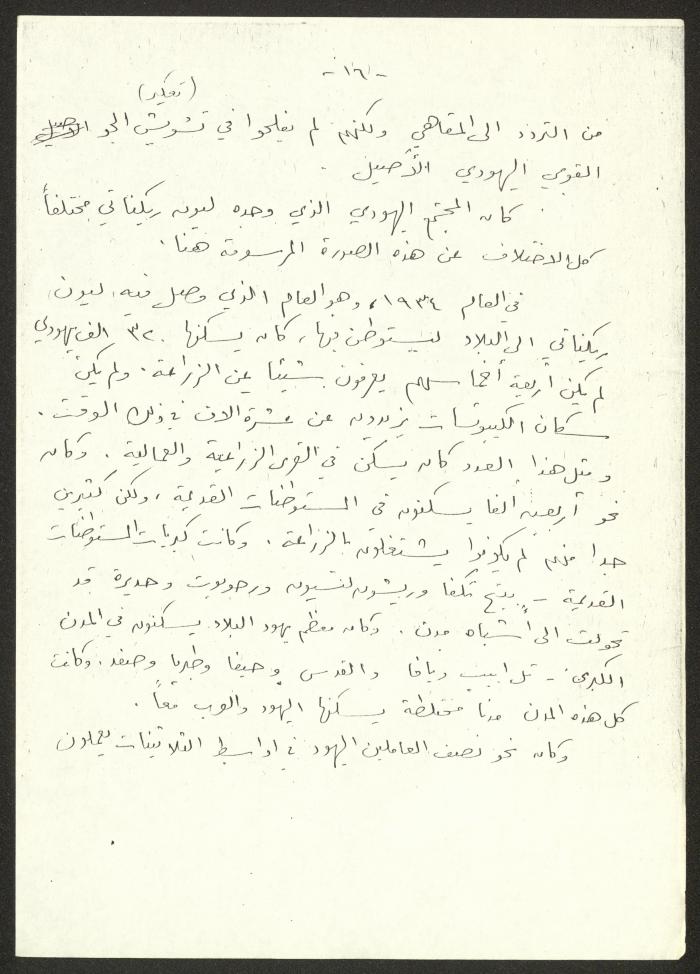 -١٦-
(تعكير)
من التردد الى المقاهي ولكنهم لم يفلحوا في تشويش الجو
القوي اليهودي الأصيل.
كان المجتمع اليهودي الذي وجده ليون ريكناتي مختلفاً
كل الاختلاف عن هذه الصورة المرسومة هنا.
في العام ١٩٣٤، وهو العام الذي وصل فيه ليون
ريكناتي الى البلاد ليستوطن فيها، كان يسكنها ٣٢٠ الف يهودي
لم يكن أربعة أخماسهم يعرفون شيئا عن الزراعة. ولم يكن
سكان الكيبوتسات يزيدون عن عشرة الاف في ذلك الوقت.
ومثل هذا العدد كان يسكن في القرى الزراعية والعمالية. وكان
نحو أربعين ألفا يسكنون في المستوطنات القديمة، ولكن كثيرين
جدا منهم لم يكونوا يشتغلون بالزراعة. وكانت كبريات المستوطنات
القديمة - بيتح تكفا وريشون لتسيون ورحوبوت وحديرة قد
تحولت الى أشباه مدن. وكان معظم يهود البلاد يسكنون في المدن
الكبرى - تل ابيب ويافا والقدس وحيفا وطبريا وصفد. وكانت
كل هذه المدن مدنا مختلطة يسكنها اليهود والعرب معاً.
وكان نحو نصف العاملين اليهود في اواسط الثلاثينات يعملون